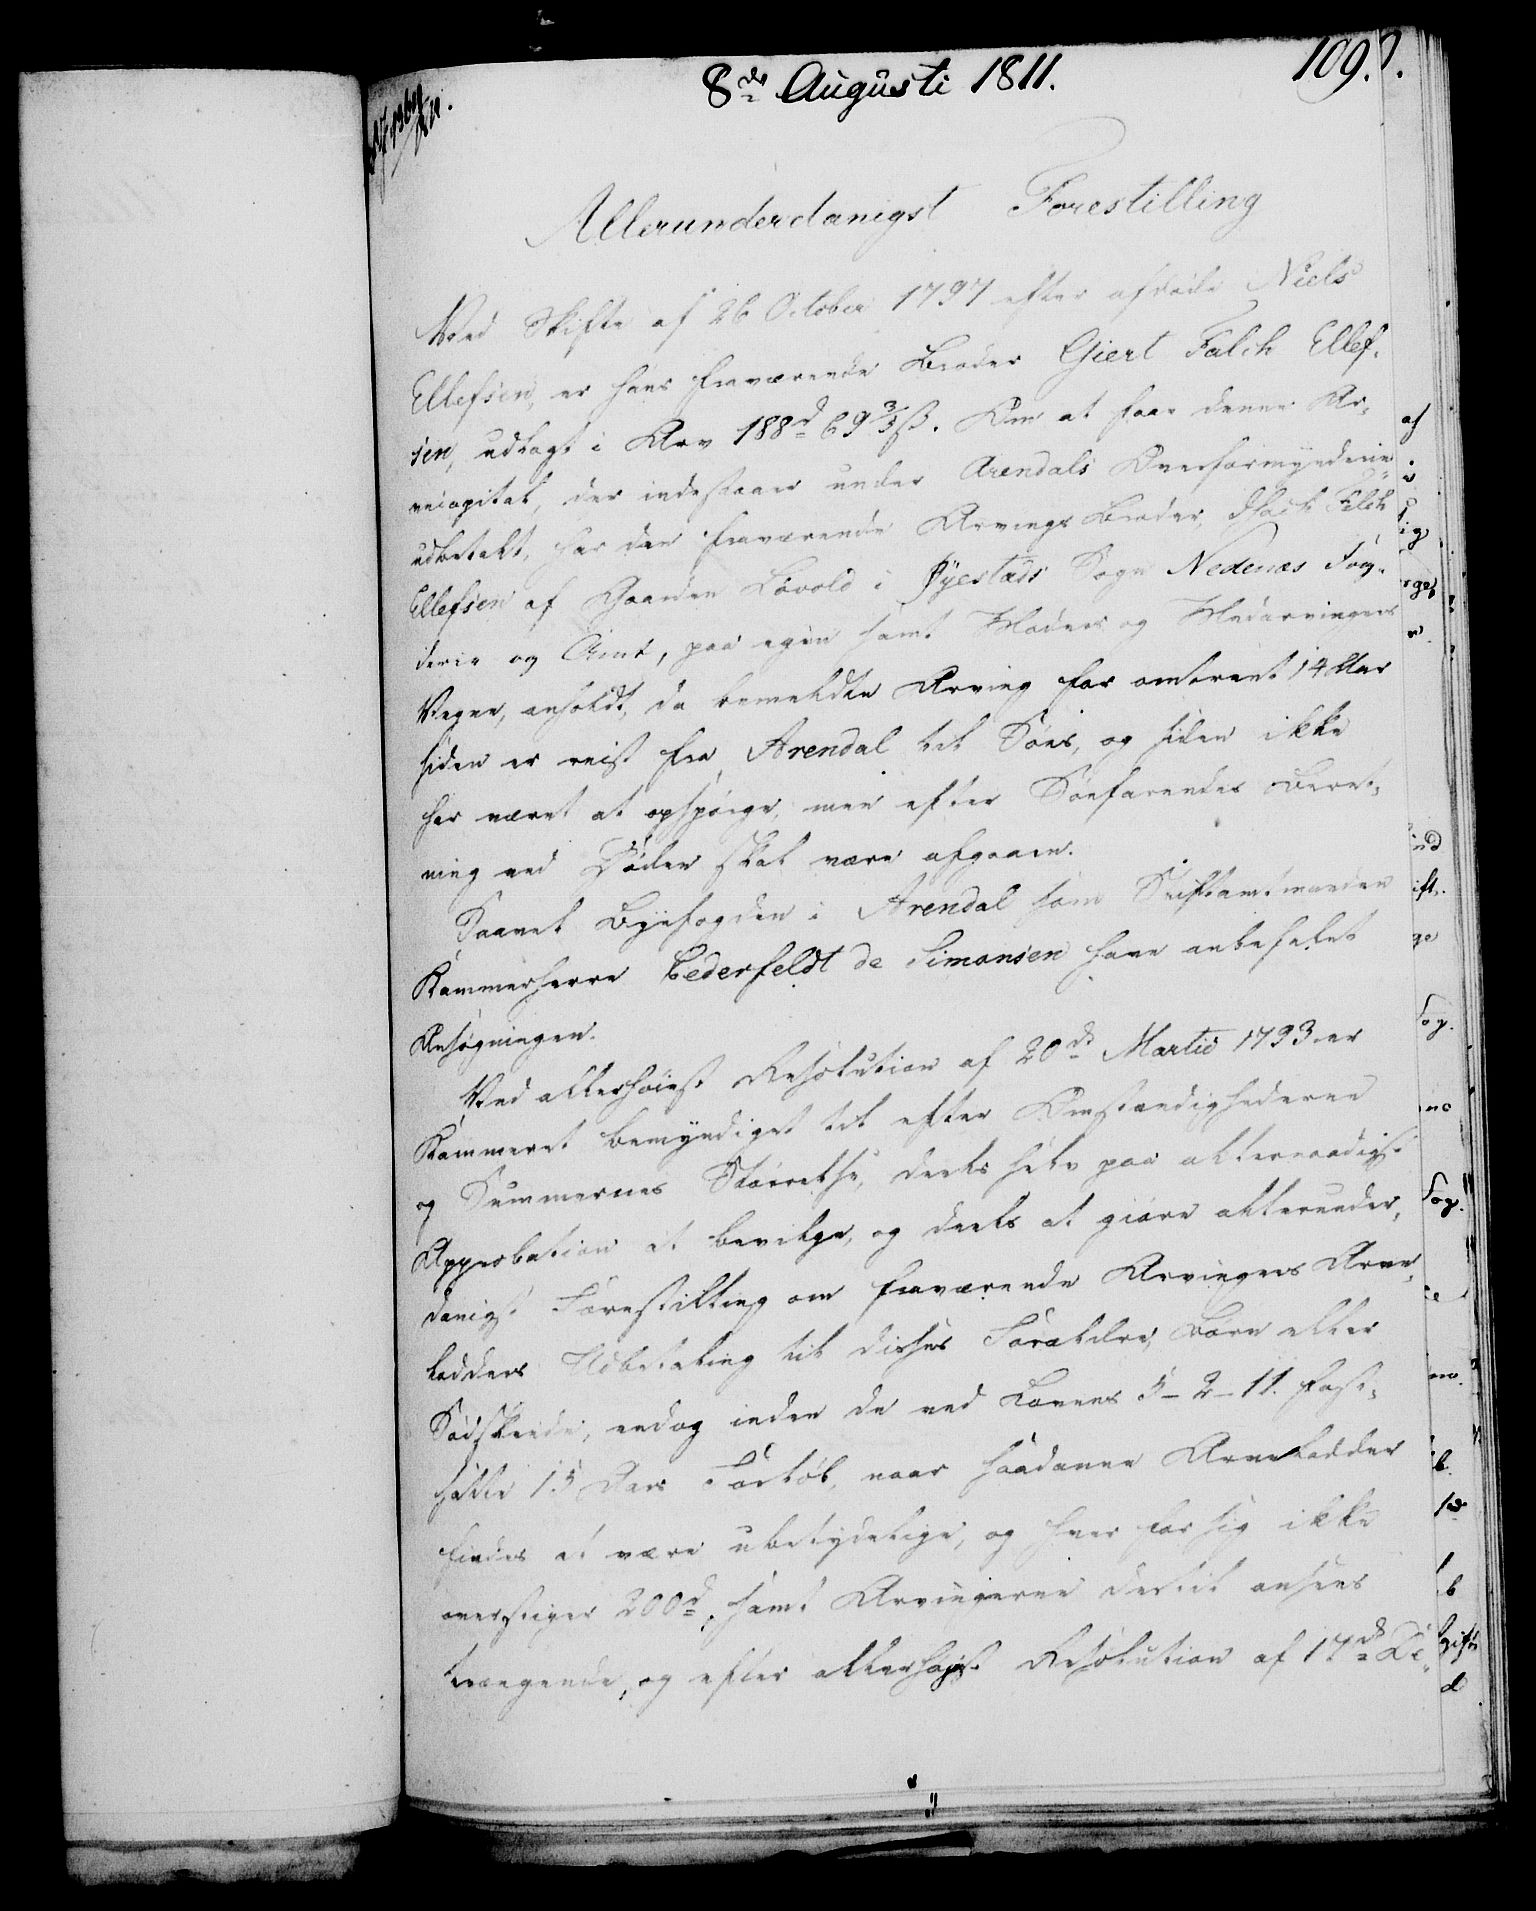 8de Augusti 1811.
109.
Allerunderdanigst Forestilling
Ved Skifte af 26 October 1797 efter afdøde Niels
Ellefsen, er hans fraværende Broder Giert Falch Ellef-
sen, udlagt i Arv 188d 69 3/5 ß. Om at faae denne Ar-
vecapital, der indestaaer under Arendals Overformynderie
udbetalt, har den fraværende Arvings Broder, Falch
Ellefsen af Gaarden Løvold i Øyestads Sogn Nedenæs Fog-
derie og Amt, paa egen samt Moders og Medarvingers
Vegne, anholdt, da bemeldte Arving for omtrent 14 Aar
siden er reist fra Arendal til Søes, og siden ikke
har været at opspørge, men efter Søefarendes Beret-
ning ved Døden skal være afgaaen.
Saavel Byefogden i Arendal som Stiftamtmanden
Kammerherre Cederfeldt de Simonsen have anbefalet
Ansøgningen.
Ved allerhøiest Resolution af 20de Martii 1793 er
Kammeret bemyndiget til efter Omstændighederne
og Summernes Størrelse, deels selv paa allernaadigst
Approbation at bevilge, og deels at giøre allerunder-
danigst Forestilling om fraværende Arvingers Arve-
lodders Udbetaling til disses Forældre, Børn eller
Sødskende, endog inden de ved Lovens 5-2-11. fast-
satte 15 Aars Forløb, naar saadanne Arvelodder
findes at være ubetydelige, og hver for sig ikke
overstiger 200d, samt Arvingerne dertil ansees
trængende, og efter allerhøjest Resolution af 17de De-